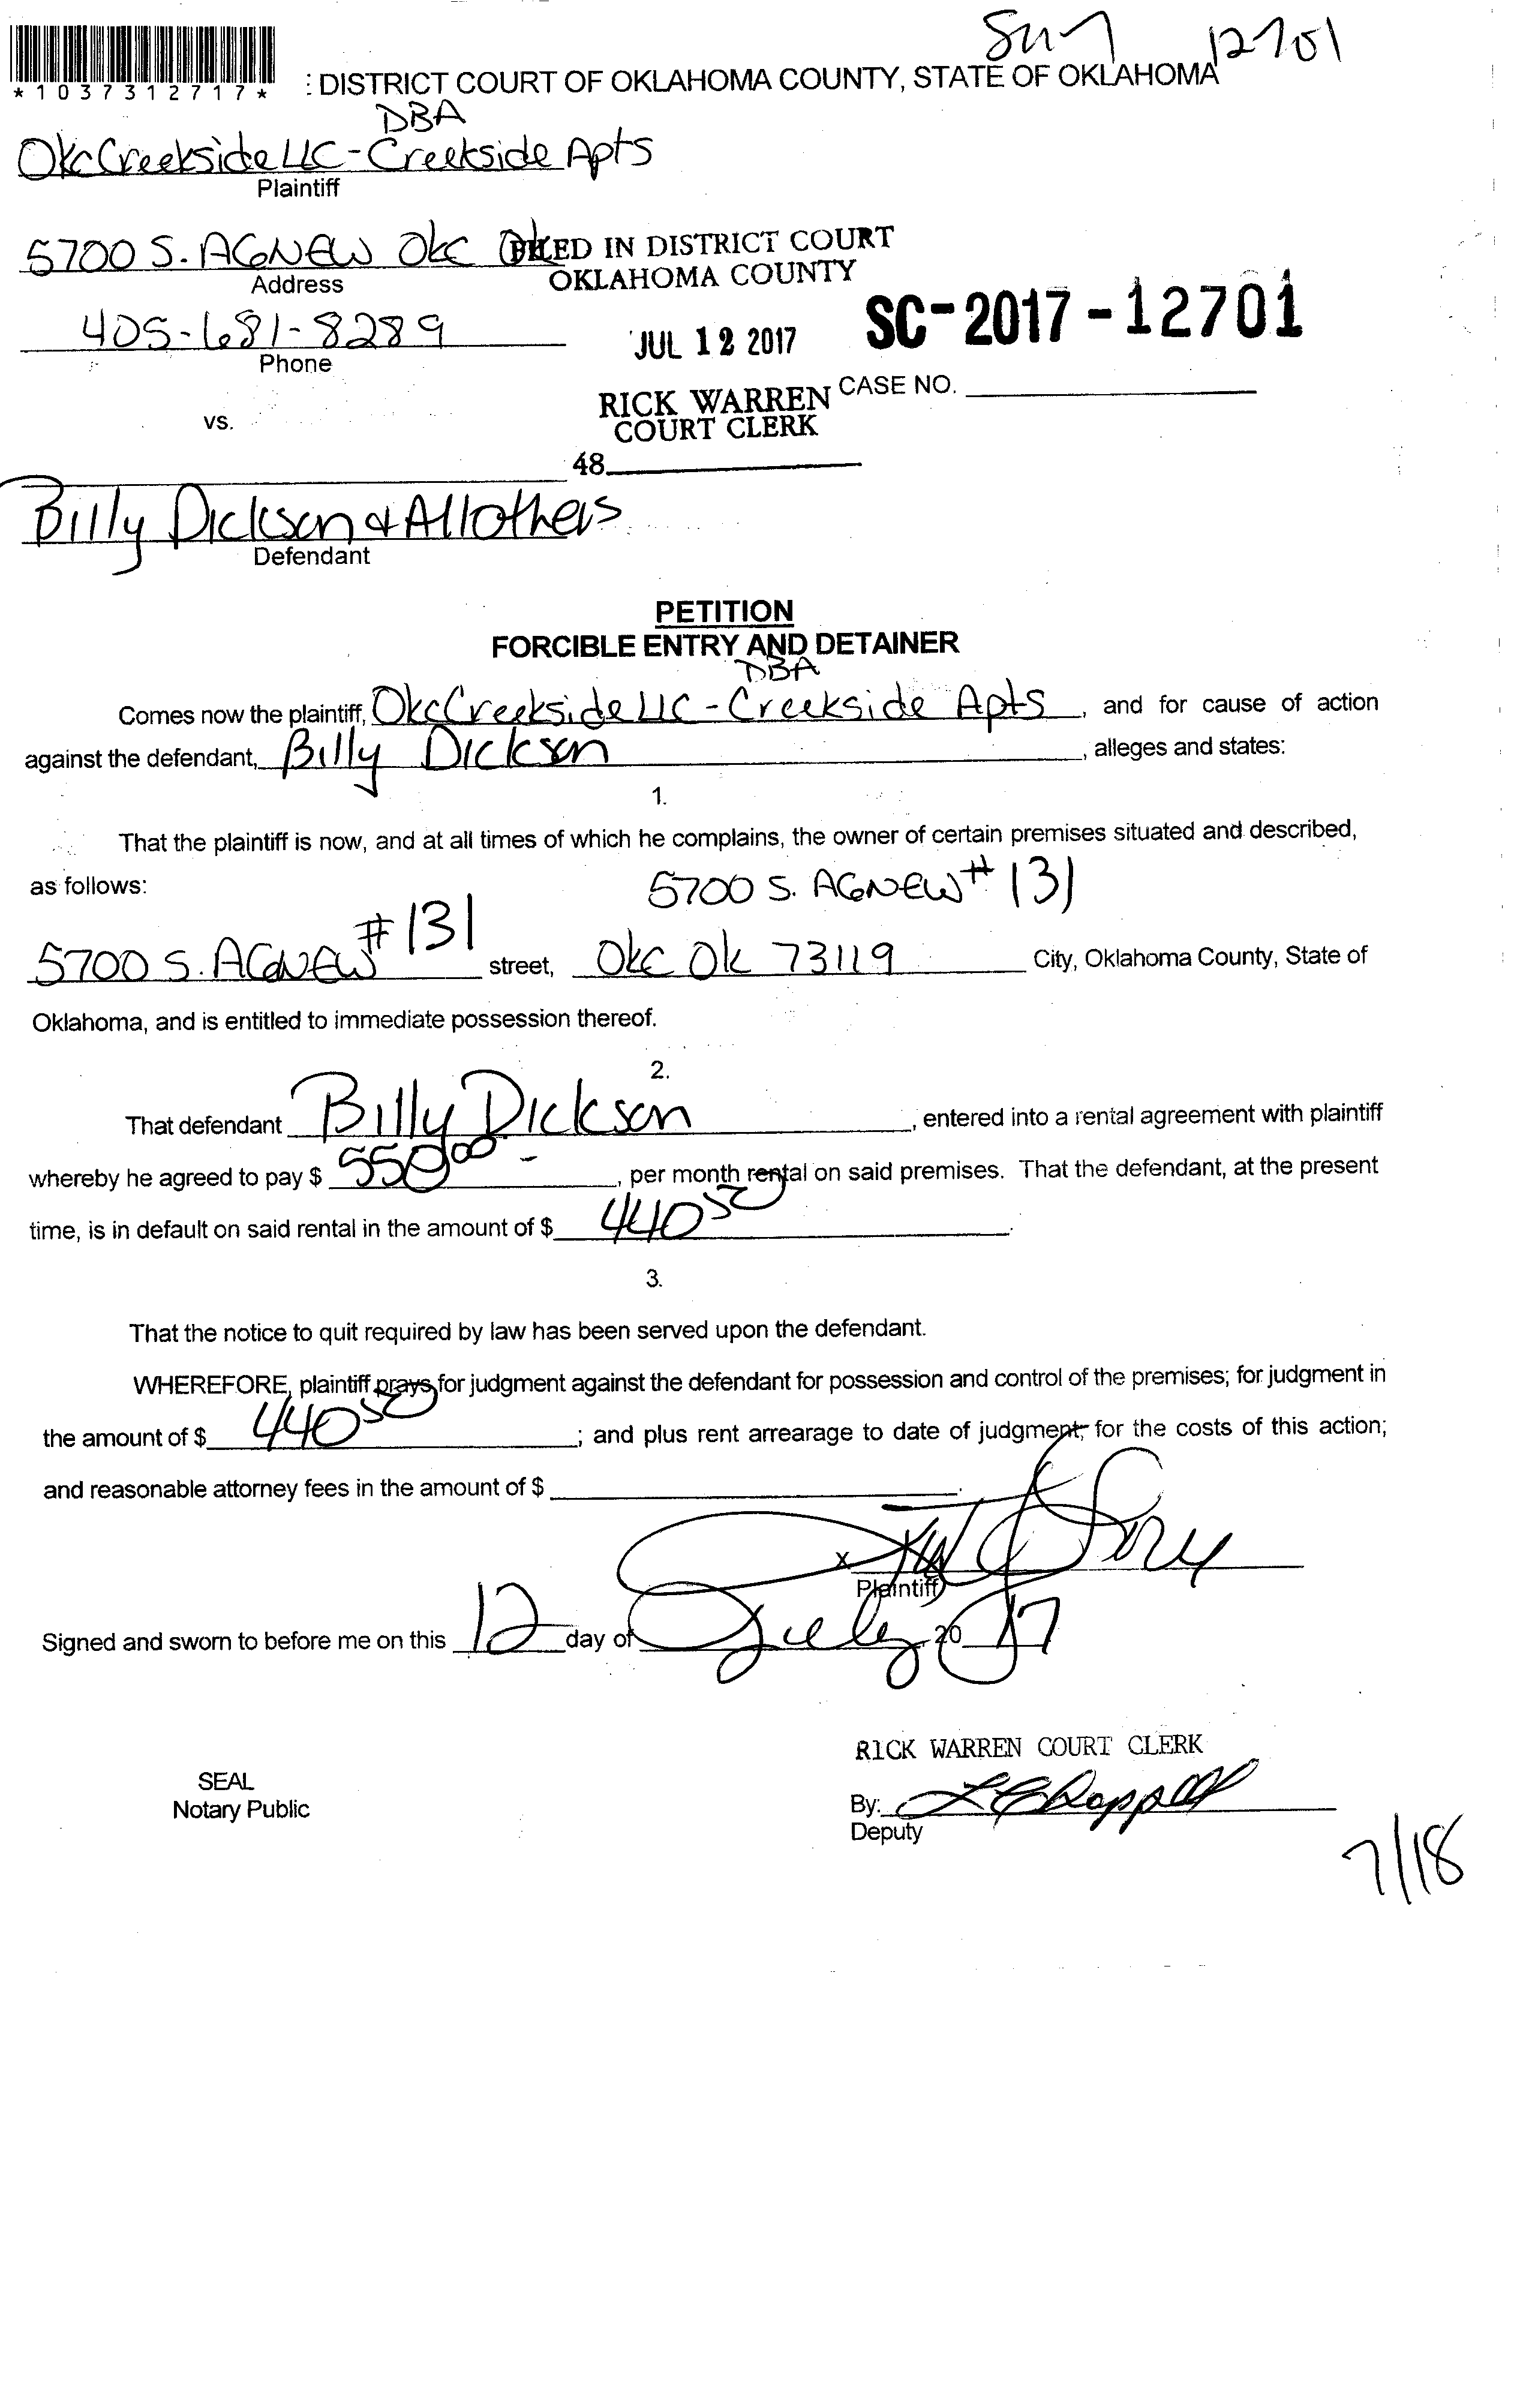 12701
*1037312717*
: DISTRICT COURT OF OKLAHOMA COUNTY, STATE OF OKLAHOMA
DBA
Okc Creekside LLC - Creekside Apts
Plaintiff
5700 S. AGNEW OKC OK
FILED IN DISTRICT COURT
Address
OKLAHOMA COUNTY
405-681-8289
Phone
JUL 12 2017
SC-2017-12701
RICK WARREN
COURT CLERK
CASE NO.
vs.
48
Billy Dickson & All others
Defendant
PETITION
FORCIBLE ENTRY AND DETAINER
DBA
Comes now the plaintiff, Okc Creekside LLC - Creekside Apts, and for cause of action
against the defendant, Billy Dickson, alleges and states:
1.
That the plaintiff is now, and at all times of which he complains, the owner of certain premises situated and described,
as follows: 5700 S. AGNEW # 131
5700 S. AGNEW # 131 street, Okc Ok 73119 City, Oklahoma County, State of
Oklahoma, and is entitled to immediate possession thereof.
2.
That defendant Billy Dickson, entered into a rental agreement with plaintiff
whereby he agreed to pay $ 550 00, per month rental on said premises. That the defendant, at the present
time, is in default on said rental in the amount of $ 440 50.
3.
That the notice to quit required by law has been served upon the defendant.
WHEREFORE, plaintiff prays for judgment against the defendant for possession and control of the premises; for judgment in
the amount of $ 440 50; and plus rent arrearage to date of judgment; for the costs of this action;
and reasonable attorney fees in the amount of $ .
x
Plaintiff
Signed and sworn to before me on this 12 day of July, 20 17
RICK WARREN COURT CLERK
SEAL
Notary Public
By:
Deputy
7/18